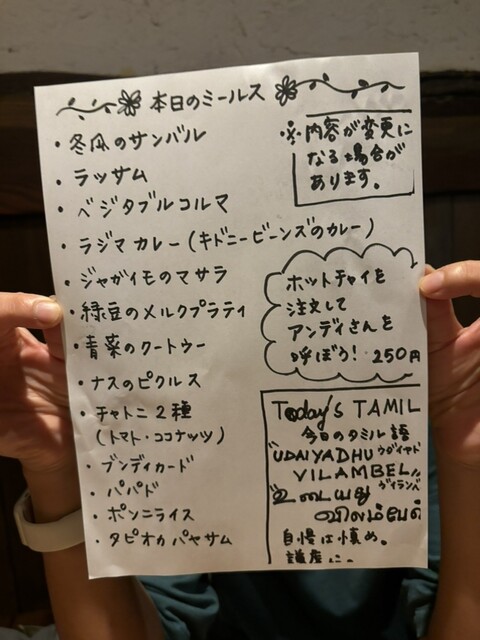 本日のミールス
・冬瓜のサンバル
・ラッサム
・ベジタブルコルマ
・ラジマカレー(キドニービーンズのカレー)
・ジャガイモのマサラ
・緑豆のメルクプラティ
・青菜のクートゥー
・ナスのピクルス
・チャトニ2種
(トマト・ココナッツ)
・ブンディカード
・パパド
・ポンニライス
・タピオカパヤサム
※内容が変更に
なる場合が
あります。
ホットチャイを
注文して
アンディさんを
呼ぼう! 250円
Today's TAMIL
今日のタミル語
"UDAIYADHU ウダイヤドゥ
VILAMBEL" ヴィランベ
"உடையது
விளம்பேல்
自慢は慎め。
謙虚に。